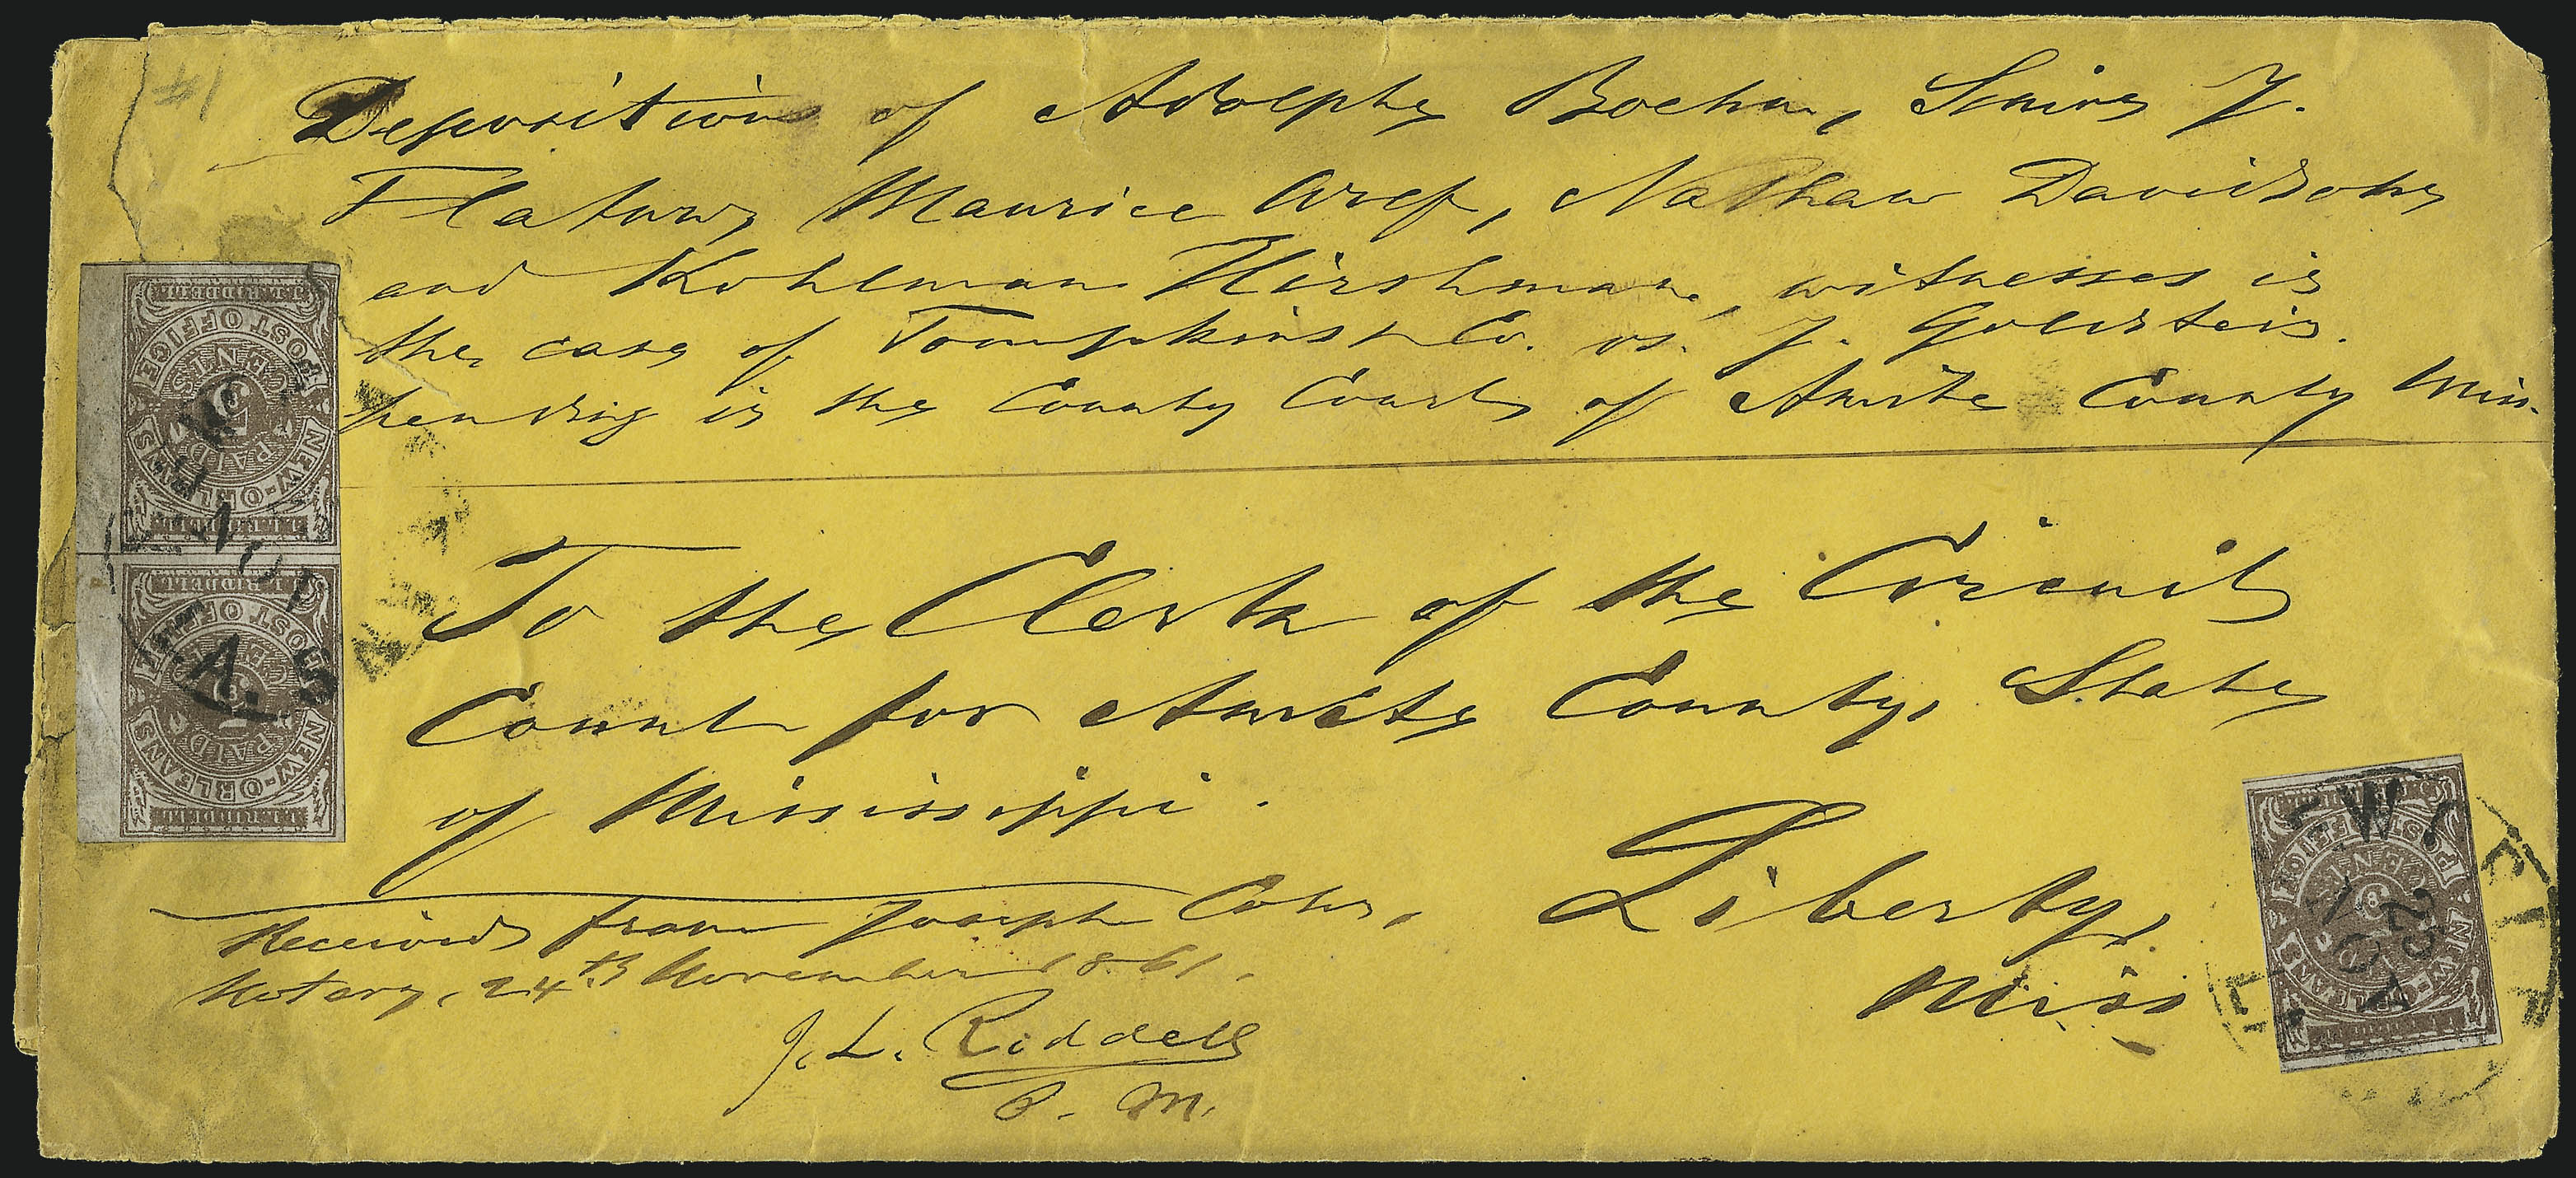 #1
Deposition of Adolphe Boehm, J.
Maurice Nathan Davidson
and Kohlman Hirshman, witnesses in
the case of Tompkins & Co. vs. J. Goldstein.
pending in the County Court of Amite County Miss.
To the Clerk of the Circuit
Court for Amite County, State
of Mississippi.
Liberty,
Miss
Received from Joseph Cohn,
Notary, 24th November 1861.
J. L. Riddell
P. M.
J. L. RIDDELL
POST OFFICE
5 CENTS
PAID
NEW-ORLEANS
J. L. RIDDELL
J. L. RIDDELL
POST OFFICE
5
PAID
NEW-ORLEANS
J. L. RIDDELL
POST OFFICE
5
NEW-ORLEANS
NOV
25